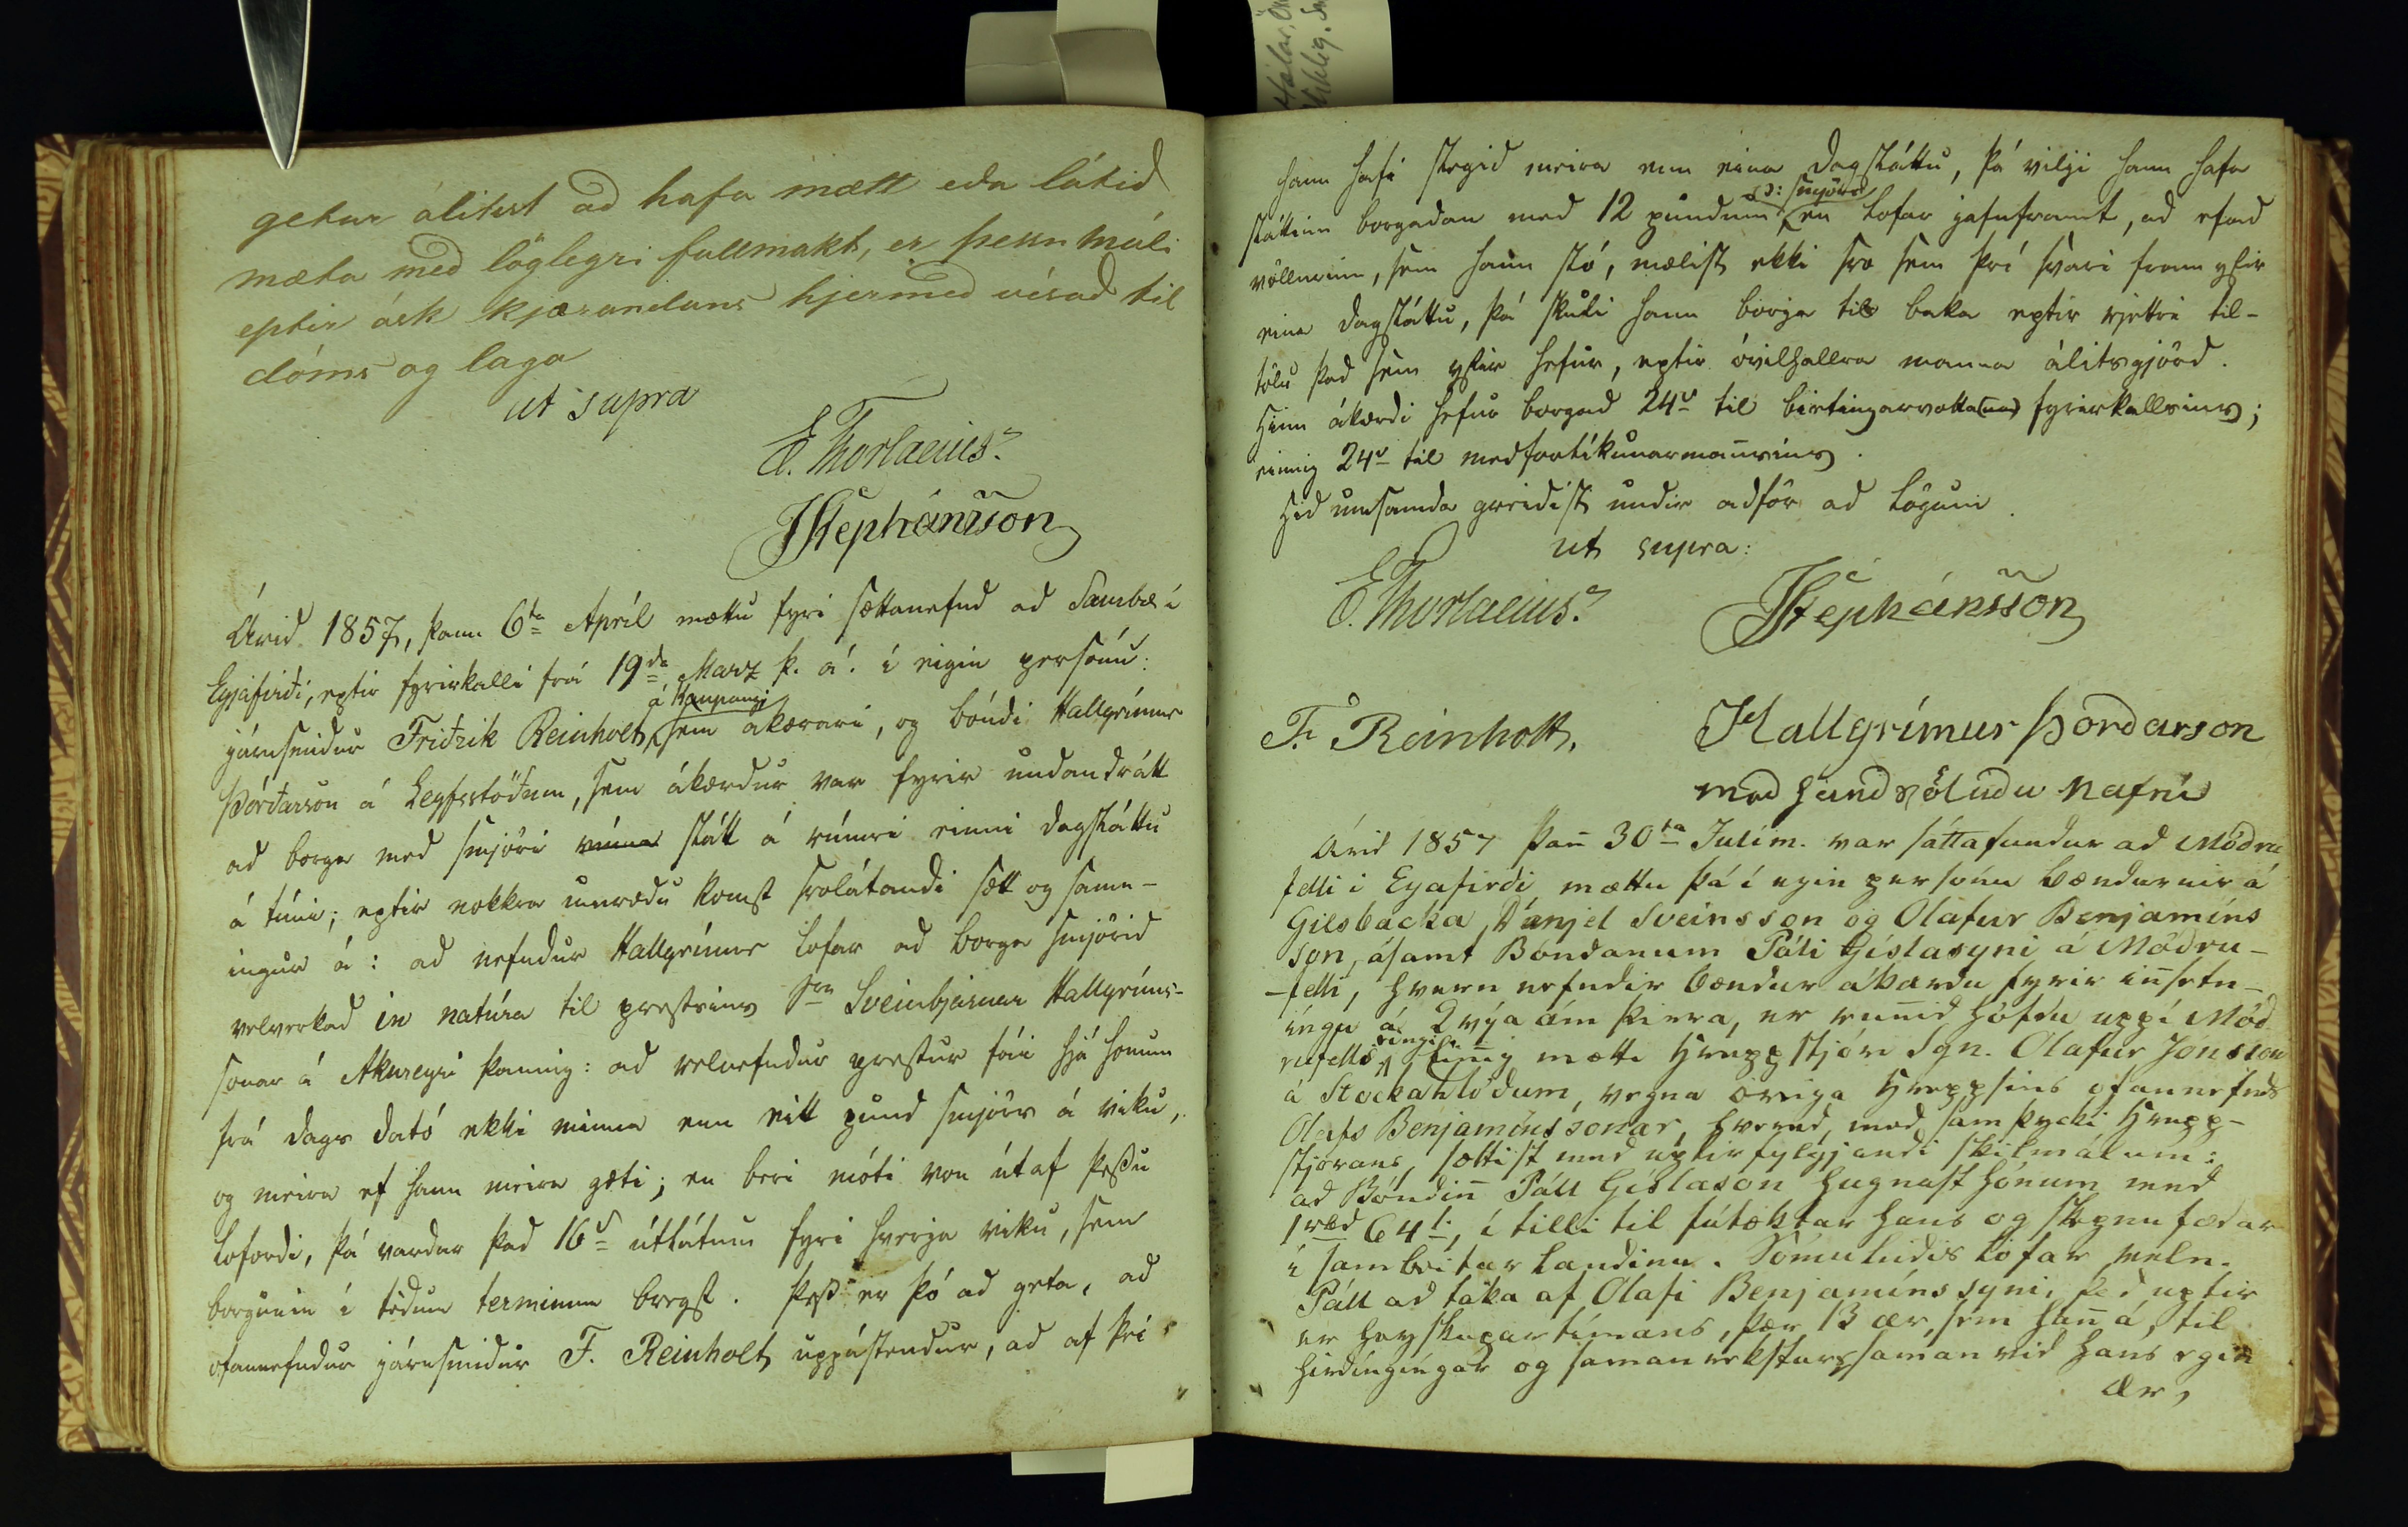 getur álitist að hafa mætt eða látið
mæta með löglegri fullmakt, er þessu máli
eptir ósk kjærandans hjermeð vísað til
dóms og laga
ut supra
E. Thorlacius.
JStephánsson
Árið 1857, þann 6ta Apríl mættu fyri sættanefnd að Saurbæ í
Eyjafirði, eptir fyrirkalli frá 19da Marz þ. á. í eigin persónu:
á Kaupangi
járnsmiður Friðrik Reinholt, sem ákærari, og bóndi Hallgrímur
Þórðarson á Leyfsstöðum, sem ákærður var fyrir undandrátt
að borga með smjöri slátt á rúmri einni dagsláttu
á túni; eptir nokkra umræðu komst svolátandi sætt og samn-
ingur á: að nefndur Hallgrímur lofar að borga smjörið
velverkað in natúra til prestsins Sra Sveinbjarnar Hallgríms-
sonar á Akureyri þannig: að velnefndur prestur fái hjá honum
frá dags dató ekki minna enn eitt pund smjörs á viku,
og meira ef hann meira gæti; en beri móti von útaf þessu
loforði, þá varðar það 16s útlátum fyri hverja viku, sem
borgunin í téðum terminum bregst. Þess er þó að geta, að
ofannefndur járnsmiður F. Reinholt uppástendur, að af því
hann hafi slegið meira enn eina dagsláttu, þá vilji hann hafa
ɔ: smjörs
sláttinn borgaðan með 12 pundum en lofar jafnframt, að efað
völlurinn, sem hann sló, mælist ekki svo sem því svari fram yfir
eina dagsláttu, þá skuli hann borga til baka eptir rjettri til-
tölu það sem yfir hefur, eptir óvilhallra manna álitsgjörð.
Hinn ákærði hefur borgað 24s til birtingarvotta(nna) fyrirkallsins;
einnig 24s til meðforlíkunarmannsins.
Hið umsamda greiðist undir aðför að lögum.
ut supra:
E. Thorlacius.
JStephánsson
Fr. Reinholt.
Hallgrímur Þorðarson
með handsöluðu nafni
Árið 1857 þan̄ 30ta Julím. var sáttafundur að Möðru
felli i Eyafirði mættu þá í egin persónu bændurnir á
Gilsbacka, Danjel Sveinsson og Olafur Benjamíns
son, ásamt Bóndanum Páli Gíslasyni á Möðru-
-felli, hvern nefndir bændur ákærðu fyrir in̄setn-
íngu á 2 vja ám þirra, er run̄ið höfðu uppí Möð
rufells Ein̄ig mætti Hreppstjóri Sgn. Olafur Jonsson
á Stockahlöðum, vegna ömiga Hreppsins ofannefnds
Olafs Benjamínssonar, hverud, með samþycki Hrepp-
stjórans, sættist með eptirfylgjandi skilmálum:
að Bóndin̄ Páll Gíslason hugnast hónum með
1rbd 64s., í tilli til fátæktar hans og skepnufæðar
í sambeitarlandinu. Sömuleiðis lofar veln.
Páll að taka af Olafi Benjamínssyni, það eptir
er heyskapartímans, þær 13 ær, sem han̄ á, til
hirðíngingar og samanreksturs saman við hans egin
ær,